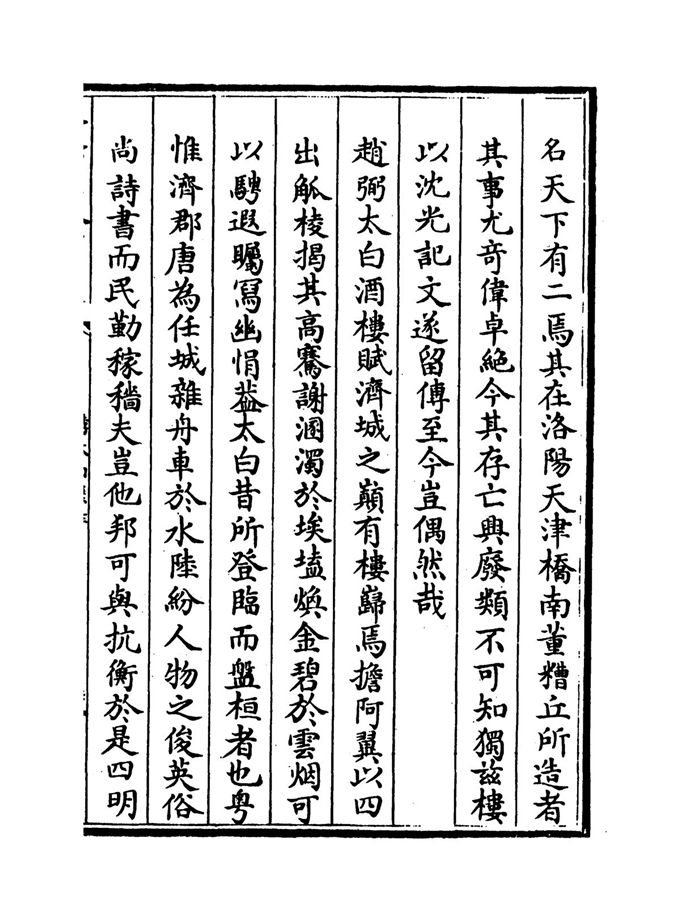 名天下有二焉其在洛陽天津橋南董糟丘所造者
其事尤奇偉卓絶今其存亡興廢類不可知獨兹樓
以沈光記文遂留傳至今豈偶然哉
趙弼太白酒樓賦濟城之巔有樓巋焉擔阿翼以四
出觚棱揭其高騫謝溷濁於埃壒煥金碧於雲烟可
以騁遐矚寫幽悁葢太白昔所登臨而盤桓者也粤
惟濟郡唐為任城雜舟車於水陸紛人物之俊英俗
尚詩書而民勤稼穡夫豈他邦可與抗衡於是四明